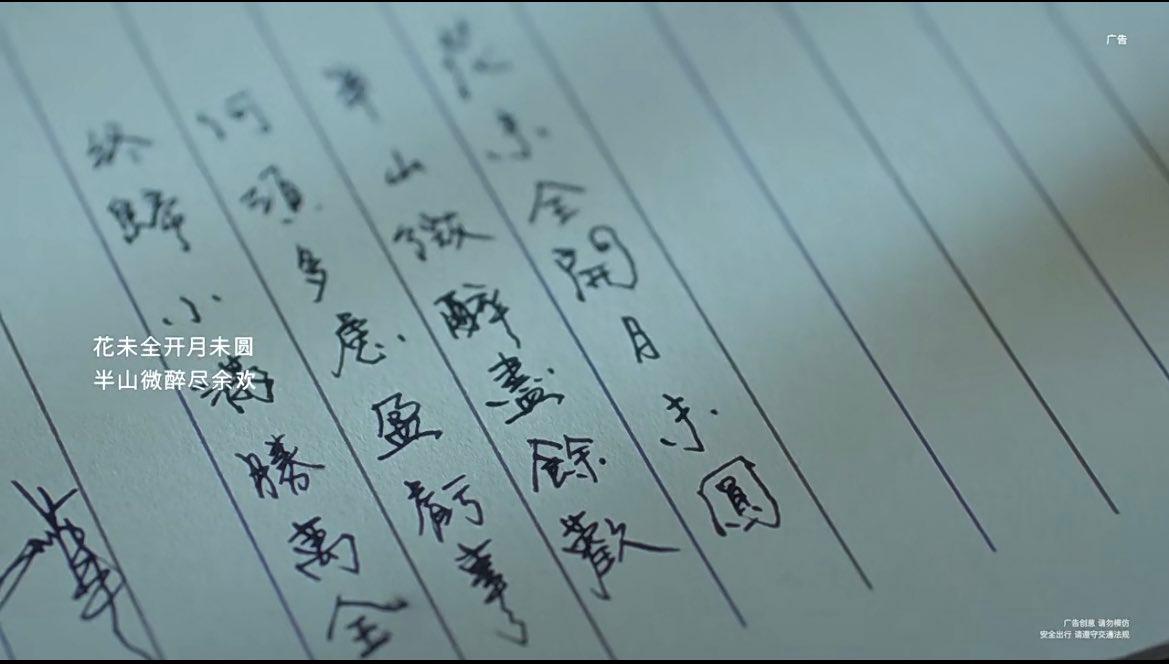 花未全開月未圓
半山微醉盡餘歡
何須多慮盈虧事
終歸小滿勝萬全
花未全开月未圆
半山微醉尽余欢
广告
广告创意 请勿模仿
安全出行 请遵守交通法规